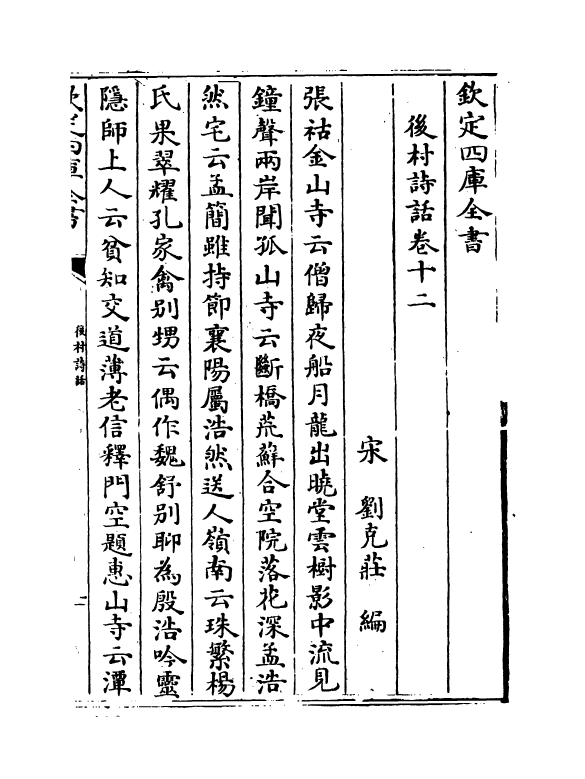 欽定四庫全書
後村詩話卷十二
宋 劉克莊 編
張祜金山寺云僧歸夜船月龍出曉堂雲樹影中流見
鐘聲兩岸聞孤山寺云斷橋荒蘚合空院落花深孟浩
然宅云孟簡雖持節襄陽屬浩然送人嶺南云珠繁楊
氏果翠耀孔家禽別甥云偶作魏舒別聊為殷浩吟靈
隱師上人云貧知交道薄老信釋門空題惠山寺云潭
欽定四庫全書
後村詩話